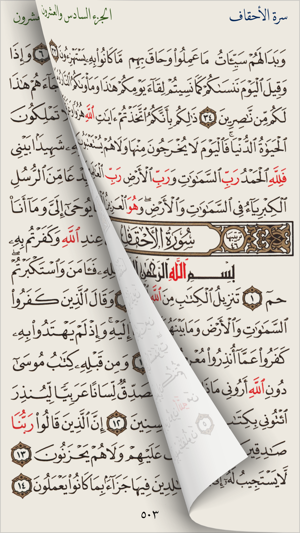 سرة الأحقاف الجزء السادس والعشرون
وَبَدَا لَهُمْ سَيِّئَاتُ مَا عَمِلُوا۟ وَحَاقَ بِهِم مَّا كَانُوا۟ بِهِۦ يَسْتَهْزِءُونَ وَإِذَا
وَقِيلَ ٱلْيَوْمَ نَنسَىٰكُمْ كَمَا نَسِيتُمْ لِقَآءَ يَوْمِكُمْ هَٰذَا وَمَأْوَىٰكُمُ جَآءَهُمْ هَٰذَا
لَكُم مِّن نَّٰصِرِينَ ٣٤ ذَٰلِكُم بِأَنَّكُمُ ٱتَّخَذْتُمْ ءَايَٰتِ ٱللَّهِ تَمْلِكُونَ
ٱلْحَيَوٰةُ ٱلدُّنْيَا فَٱلْيَوْمَ لَا يُخْرَجُونَ مِنْهَا وَلَا هُمْ يُسْتَعْتَبُونَ شَهِيدًۢا بَيْنِى
فَلِلَّهِ ٱلْحَمْدُ رَبِّ ٱلسَّمَٰوَٰتِ وَرَبِّ ٱلْأَرْضِ رَبِّ مِّنَ ٱلرُّسُلِ
ٱلْكِبْرِيَآءُ فِى ٱلسَّمَٰوَٰتِ وَٱلْأَرْضِ وَهُوَ يُوحَىٰٓ إِلَىَّ وَمَآ أَنَا۠
سُورَةُ الأَحْقَافِ عِندِ ٱللَّهِ وَكَفَرْتُم بِهِۦ
بِسْمِ ٱللَّهِ ٱلرَّحْمَٰنِ فَـَٔامَنَ وَٱسْتَكْبَرْتُمْ
حمٓ ١ تَنزِيلُ ٱلْكِتَٰبِ مِنَ ٱللَّهِ وَقَالَ ٱلَّذِينَ كَفَرُوا۟
ٱلسَّمَٰوَٰتِ وَٱلْأَرْضَ وَمَا بَيْنَهُمَآ إِلَيْهِ وَإِذْ لَمْ يَهْتَدُوا۟ بِهِۦ
كَفَرُوا۟ عَمَّآ أُنذِرُوا۟ وَمِن قَبْلِهِۦ كِتَٰبُ مُوسَىٰٓ
دُونِ ٱللَّهِ أَرُونِى مَاذَا لِّسَانًا عَرَبِيًّا لِّيُنذِرَ
ٱئْتُونِى بِكِتَٰبٍ ١٢ إِنَّ ٱلَّذِينَ قَالُوا۟ رَبُّنَا
صَٰدِقِينَ عَلَيْهِمْ وَلَا هُمْ يَحْزَنُونَ ١٣
لَّا يَسْتَجِيبُ لَهُۥٓ فِيهَا جَزَآءًۢ بِمَا كَانُوا۟ يَعْمَلُونَ ١٤
٥٠٣